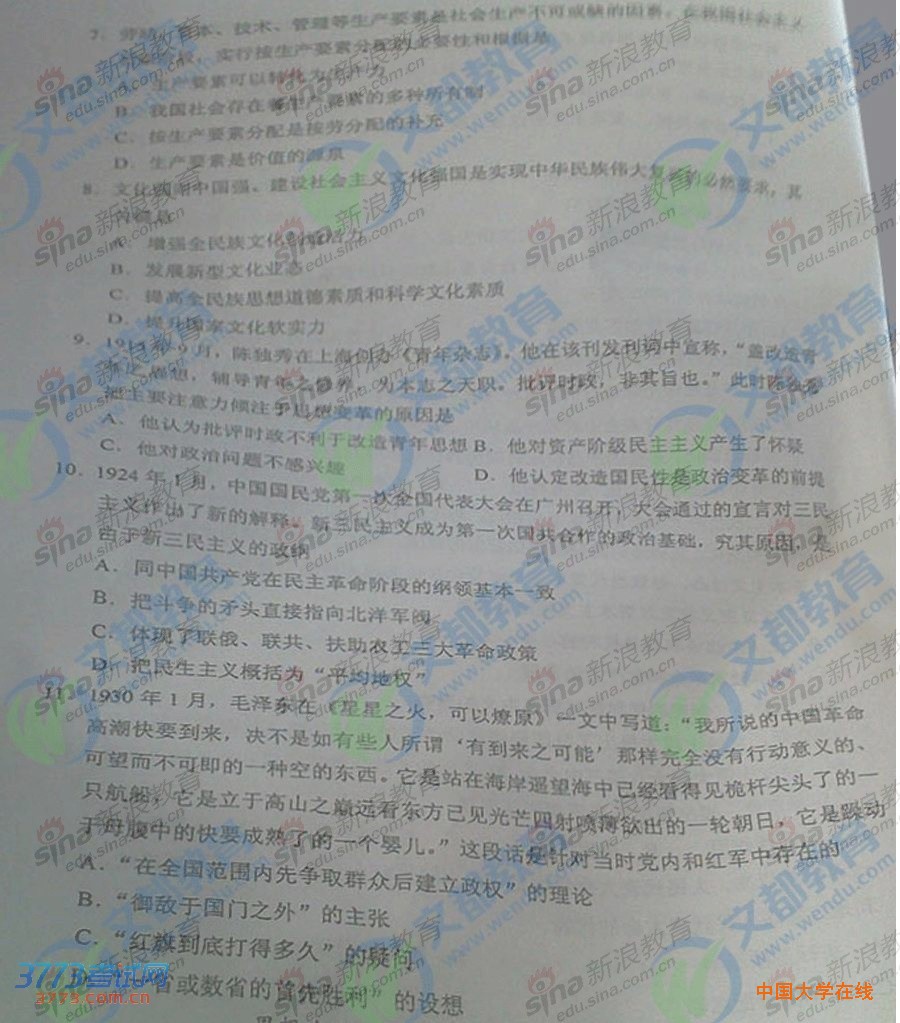 7. 劳动、资本、技术、管理等生产要素是社会生产不可或缺的因素。在我国社会主义
实行按生产要素分配的必要性和根据是
A. 生产要素可以转化为生产力
B. 我国社会存在着生产要素的多种所有制
C. 按生产要素分配是按劳分配的补充
D. 生产要素是价值的源泉
8. 文化强国中国强、建设社会主义文化强国是实现中华民族伟大复兴的必然要求,其
关键是
A. 增强全民族文化创造活力
B. 发展新型文化业态
C. 提高全民族思想道德素质和科学文化素质
D. 提升国家文化软实力
9. 1915年9月,陈独秀在上海创办《青年杂志》。他在该刊发刊词中宣称,“盖改造青
年之思想,辅导青年之修养,为本志之天职。批评时政,非其旨也。”此时陈独秀
把主要注意力倾注于思想变革的原因是
A. 他认为批评时政不利于改造青年思想 B. 他对资产阶级民主主义产生了怀疑
C. 他对政治问题不感兴趣 D. 他认定改造国民性是政治变革的前提
10. 1924年1月,中国国民党第一次全国代表大会在广州召开,大会通过的宣言对三民
主义作出了新的解释。新三民主义成为第一次国共合作的政治基础,究其原因,是
由于新三民主义的政纲
A. 同中国共产党在民主革命阶段的纲领基本一致
B. 把斗争的矛头直接指向北洋军阀
C. 体现了联俄、联共、扶助农工三大革命政策
D. 把民生主义概括为“平均地权”
11. 1930年1月,毛泽东在《星星之火,可以燎原》一文中写道:“我所说的中国革命
高潮快要到来,决不是如有些人所谓‘有到来之可能’那样完全没有行动意义的、
可望而不可即的一种空的东西。它是站在海岸遥望海中已经看得见桅杆尖头了的一
只航船,它是立于高山之巅远看东方已见光芒四射喷薄欲出的一轮朝日,它是躁动
于母腹中的快要成熟了的一个婴儿。”这段话是针对当时党内和红军中存在的
A. “在全国范围内先争取群众后建立政权”的理论
B. “御敌于国门之外”的主张
C. “红旗到底打得多久”的疑问
省或数省的首先胜利”的设想
3773考试网
3773.com.cn
中国大学在线
sina新浪教育
edu.sina.com.cn
文都教育
www.wendu.com